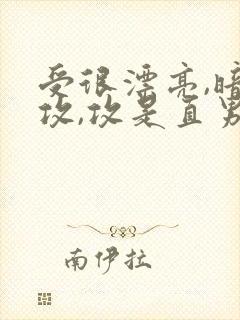 受很漂亮,暗
攻,攻是直男
南伊拉